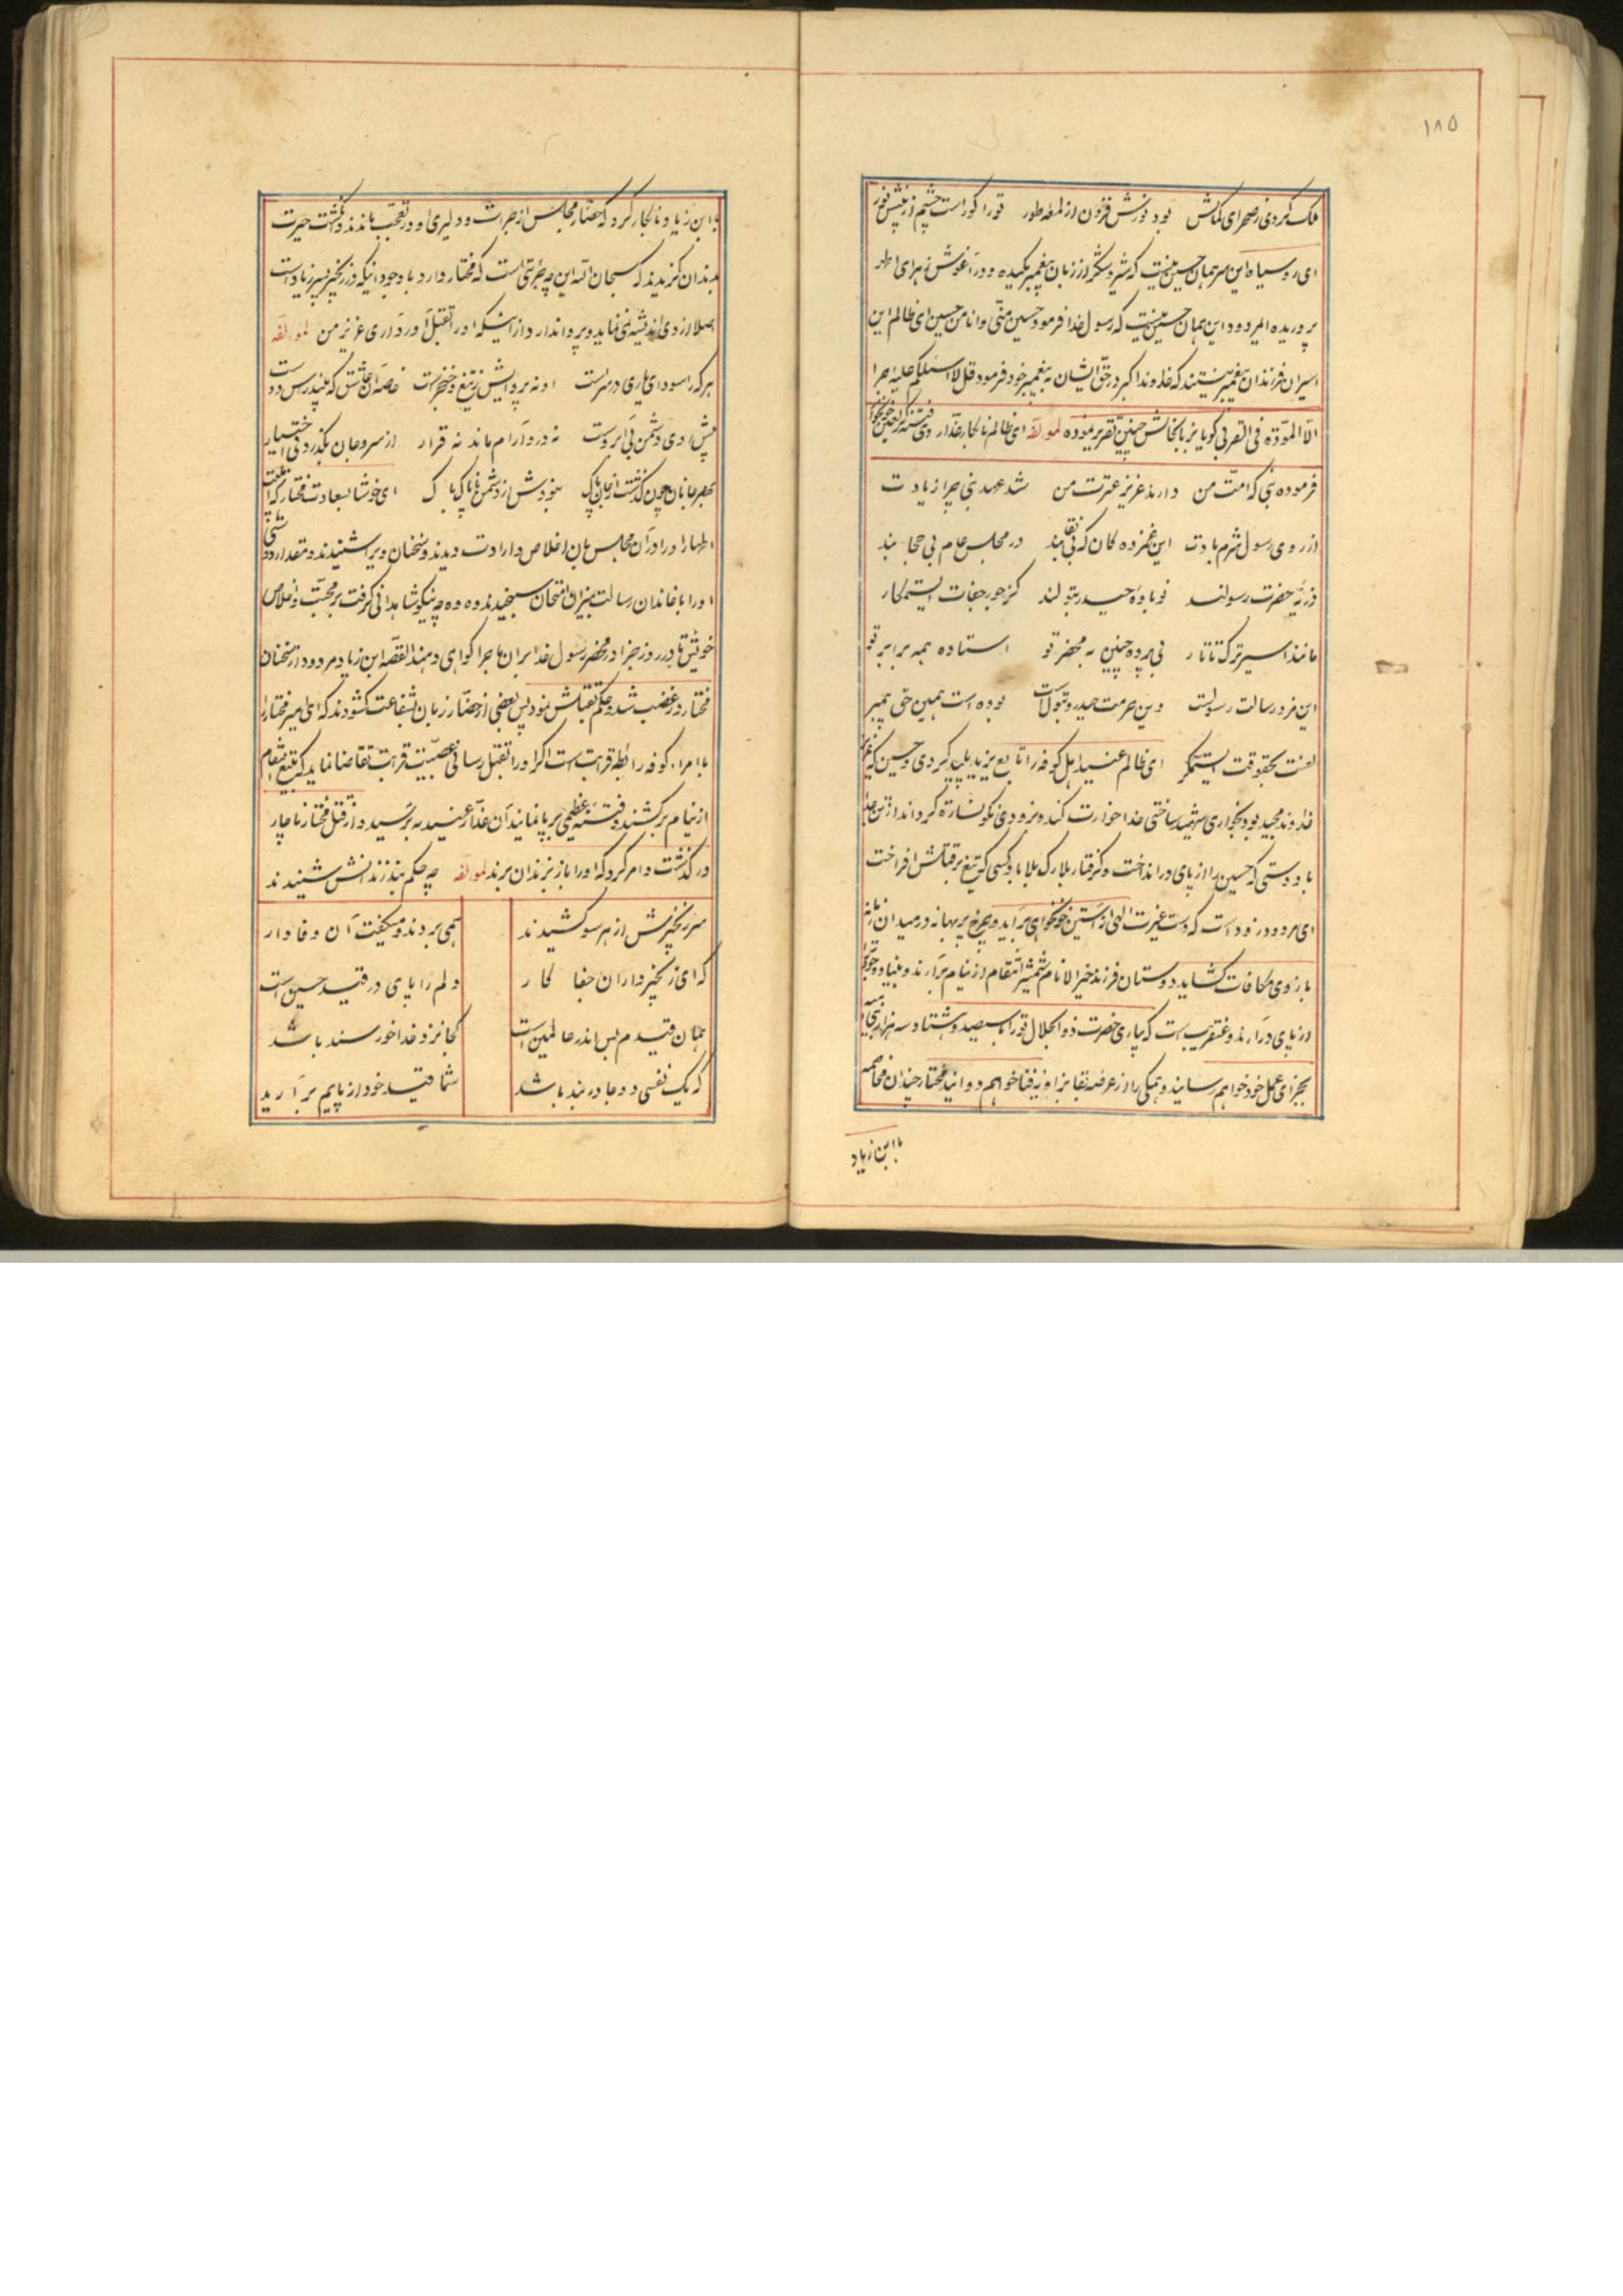 ۱۸۵
فلک کردی ز صحرای کماکش بود نورش فزون از لمعه طور تو را کور است چشم از پیش نور
ای رو سیاه این سر همان حسین نیست که شیر و شکر از زبان پیغمبر مکیده و در آغوش زهرای اطهر
پروریده ای مردود این همان حسین نیست که رسول خدا فرمود حسین منی و انا من حسین ای ظالم این
اسیران فرزندان پیغمبر نیستند که خداوند اکبر در حق ایشان به پیغمبر خود فرمود قل لا اسئلکم علیه اجرا
الا المودة فی القربی گویا نیز بابخالش چنین تقریر نموده لمولفه ای ظالم نابکار غدار وی فتنه گر لعین خونخوار
فرموده نبی که امت من دارند عزیز عترت من شد عهد نبی چرا زیادت
از روی رسول شرم بادت این غمزده کان که بی نقابند در مجلس عام بی حجابند
ذریه حضرت رسولند نوباوه حیدر و بتولند کز جور و جفات ای ستمکار
مانند اسیر ترک تاتار بی پرده چنین به محضر تو استاده همه برابر تو
این مزد رسالت رسولست وین حرمت حیدر و بتولست بوده است همین حق پیمبر
لعنت بحقوقت ای ستمگر ای ظالم عنید اهل کوفه را تابع یزید پلید کردی و حسین که عزیز
خداوند مجید بود بخواری شهید ساختی خدا خوارت کند و بزودی نگونسارت گرداند از تن جدا
باد دستی که حسین را از پای در انداخت و گرفتار بلارک بلا باد کسی که تیغ بر قتلش افراخت
ای مردود زود است که دست غیرت الهی از آستین خونخواهی برآید و چرخ پر بهانه در میدان زمانه
بازوی مکافات گشاید دوستان فرزند خیر الانام شمشیر انتقام از نیام برآرند و بنیاد وجود
از پای درآرند و عنقریب است که بیاری حضرت ذو الجلال تو را با سیصد و هشتاد و سه هزار بنی امیه
بجزای عمل خود خواهم رسانید و همگی را از عرصه بقا بزاویه فنا خواهم دوانید مختار چندان مخاصمه
با ابن زیاد
با ابن زیاد نابکار کرد که حضار مجلس از جرات و دلیری او در تعجب بماندند و انگشت حیرت
بدندان گزیدند که سبحان الله این چه جرئتی است که مختار دارد با وجود اینکه در زنجیر پسر زیاد است
اصلا از وی اندیشه نمی نماید و پروا ندارد از اینکه او را بقتل آورد آری عزیز من لمولفه
هر که را سودای یاری در سر است او نه پروایش ز تیغ و خنجر است خاصه آن عاشق که بیند روی دوست
پیش روی دشمن بی آبروست نه درو آرام ماند نه قرار از سر و جان بگذرد بی اختیار
بهر جانان چون گذشت از جان پاک نبودش از دشمن ناپاک باک ای خوشا بسعادت مختار که
اطهار او را در آن مجلس بان اخلاص و ارادت دیدند و سخنان ویرا شنیدند و مقدار دوستی
او را با خاندان رسالت بمیزان امتحان سنجیدند وه وه چه نیکو شاهدانی گرفت بر محبت و اخلاص
خویش تا در روز جزا در محضر رسول خدا بر آن ماجرا گواهی دهند القصه ابن زیاد مردود از سخنان
مختار در غضب شد و حکم بقتلش نمود پس بعضی از حضار زبان شفاعت گشودند که ای امیر مختار را
با امراء کوفه رابطه قرابت است اگر او را بقتل رسانی عصبیت قرابت تقاضا نماید که تیغ انتقام
از نیام برکشند و فتنه عظیمی برپا نمایند آن غدار عنید بترسید و از قتل مختار ناچار
در گذشت و امر کرد که او را باز بزندان برند لمولفه چه حکم بند زندانش شنیدند
سر زنجیرش از هر سو کشیدند همی بردند و میگفت آن وفادار
که ای زنجیرداران جفا کار دلم را پای در قید حسین است
همان قیدم بس اندر عالمین است کجا نزد خدا خورسند باشد
که یک نفسی دو جا در بند باشد شما قید خود از پایم برآرید